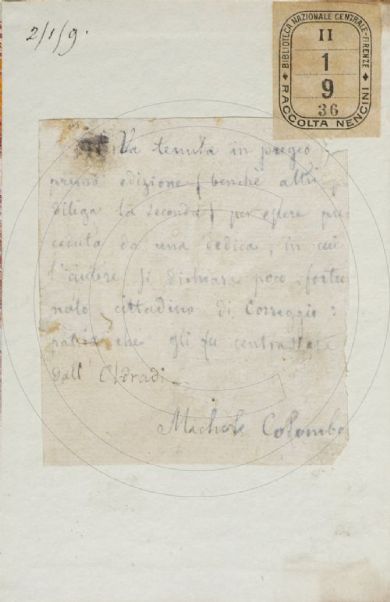 2/1/9.
BIBLIOTECA NAZIONALE CENTRALE - FIRENZE
II
1
9
36
RACCOLTA NENCINI
Va tenuta in pregio
prima edizione ( benchè altri
la seconda ) per essere pre
ceduta da una dedica, in cui
l'autore si dichiara poco fortu
nato cittadino di Correggio:
che gli fu
dall'
Colombo